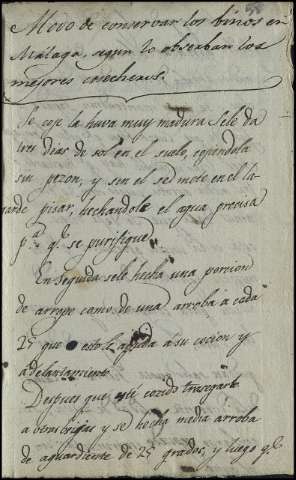 Modo de conservar los binos en
Malaga, segun lo observaban los
mejores cosecheros.
Se coje la huva muy madura Sele da
tres dias de sol en el suelo, cojendola
sin pezon, y sin el sed mote en el la-
garde pisar, hechandole el agua precisa
pª. qª. se purifique
En seguida sele hecha una porcion
de arrope como de una arroba a cada
25 que esto le ayuda a su cocion y
adelantamiento
Despues que esté cocido trasegarlo
a otras y se hecha media arroba
de aguardiente de 25 grados, y luego qª.